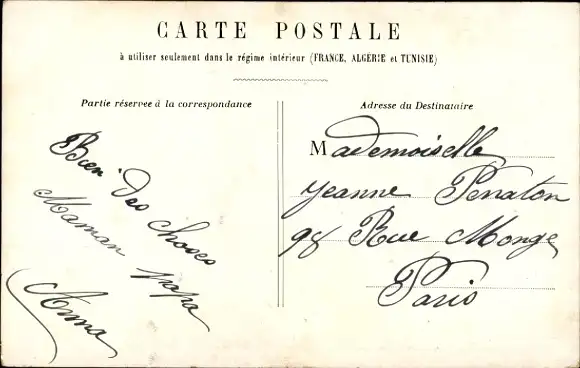 CARTE POSTALE
à utiliser seulement dans le régime intérieur (FRANCE, ALGERIE et TUNISIE)
Partie réservee à la correspondance
Bien des choses
Maman papa
Anna
Adresse du Destinataire
Mademoiselle
Jeanne Penaton
98 Rue Monge
Paris